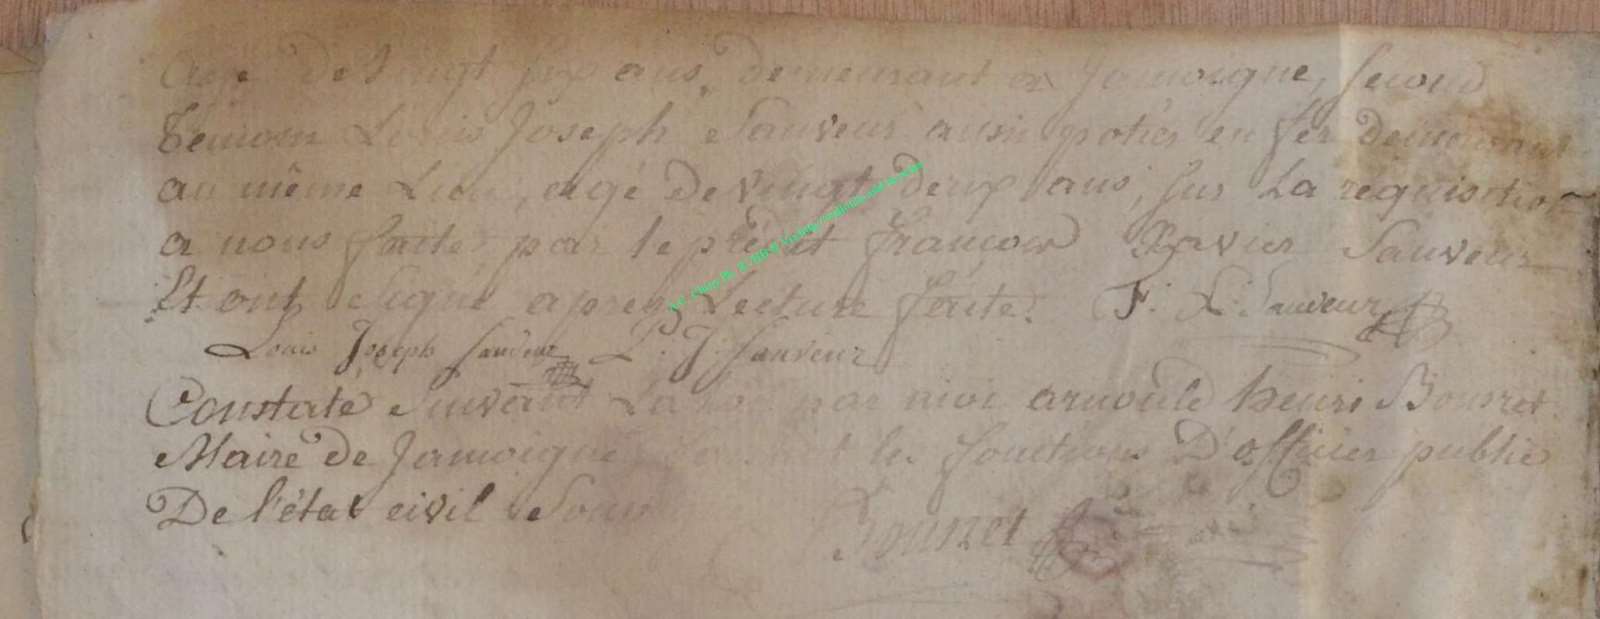 Agé de vingt six ans, demeurant a Jamoigne, second
Temoin Louis Joseph Sauveur aussi potier en fer demeurant
au même Lieu, agé de vingt deux ans, sur La requisition
a nous faite par le pèet francois Xavier Sauveur
Et ont Signé aprez Lecture faite. F. X. Sauveur
Louis Joseph Sauveur L. J. Sauveur
Constaté Suivant La loi par moi arnould henri Bounet
Maire de Jamoigne les fonctions D'officier public
De l'état civil
Bounet